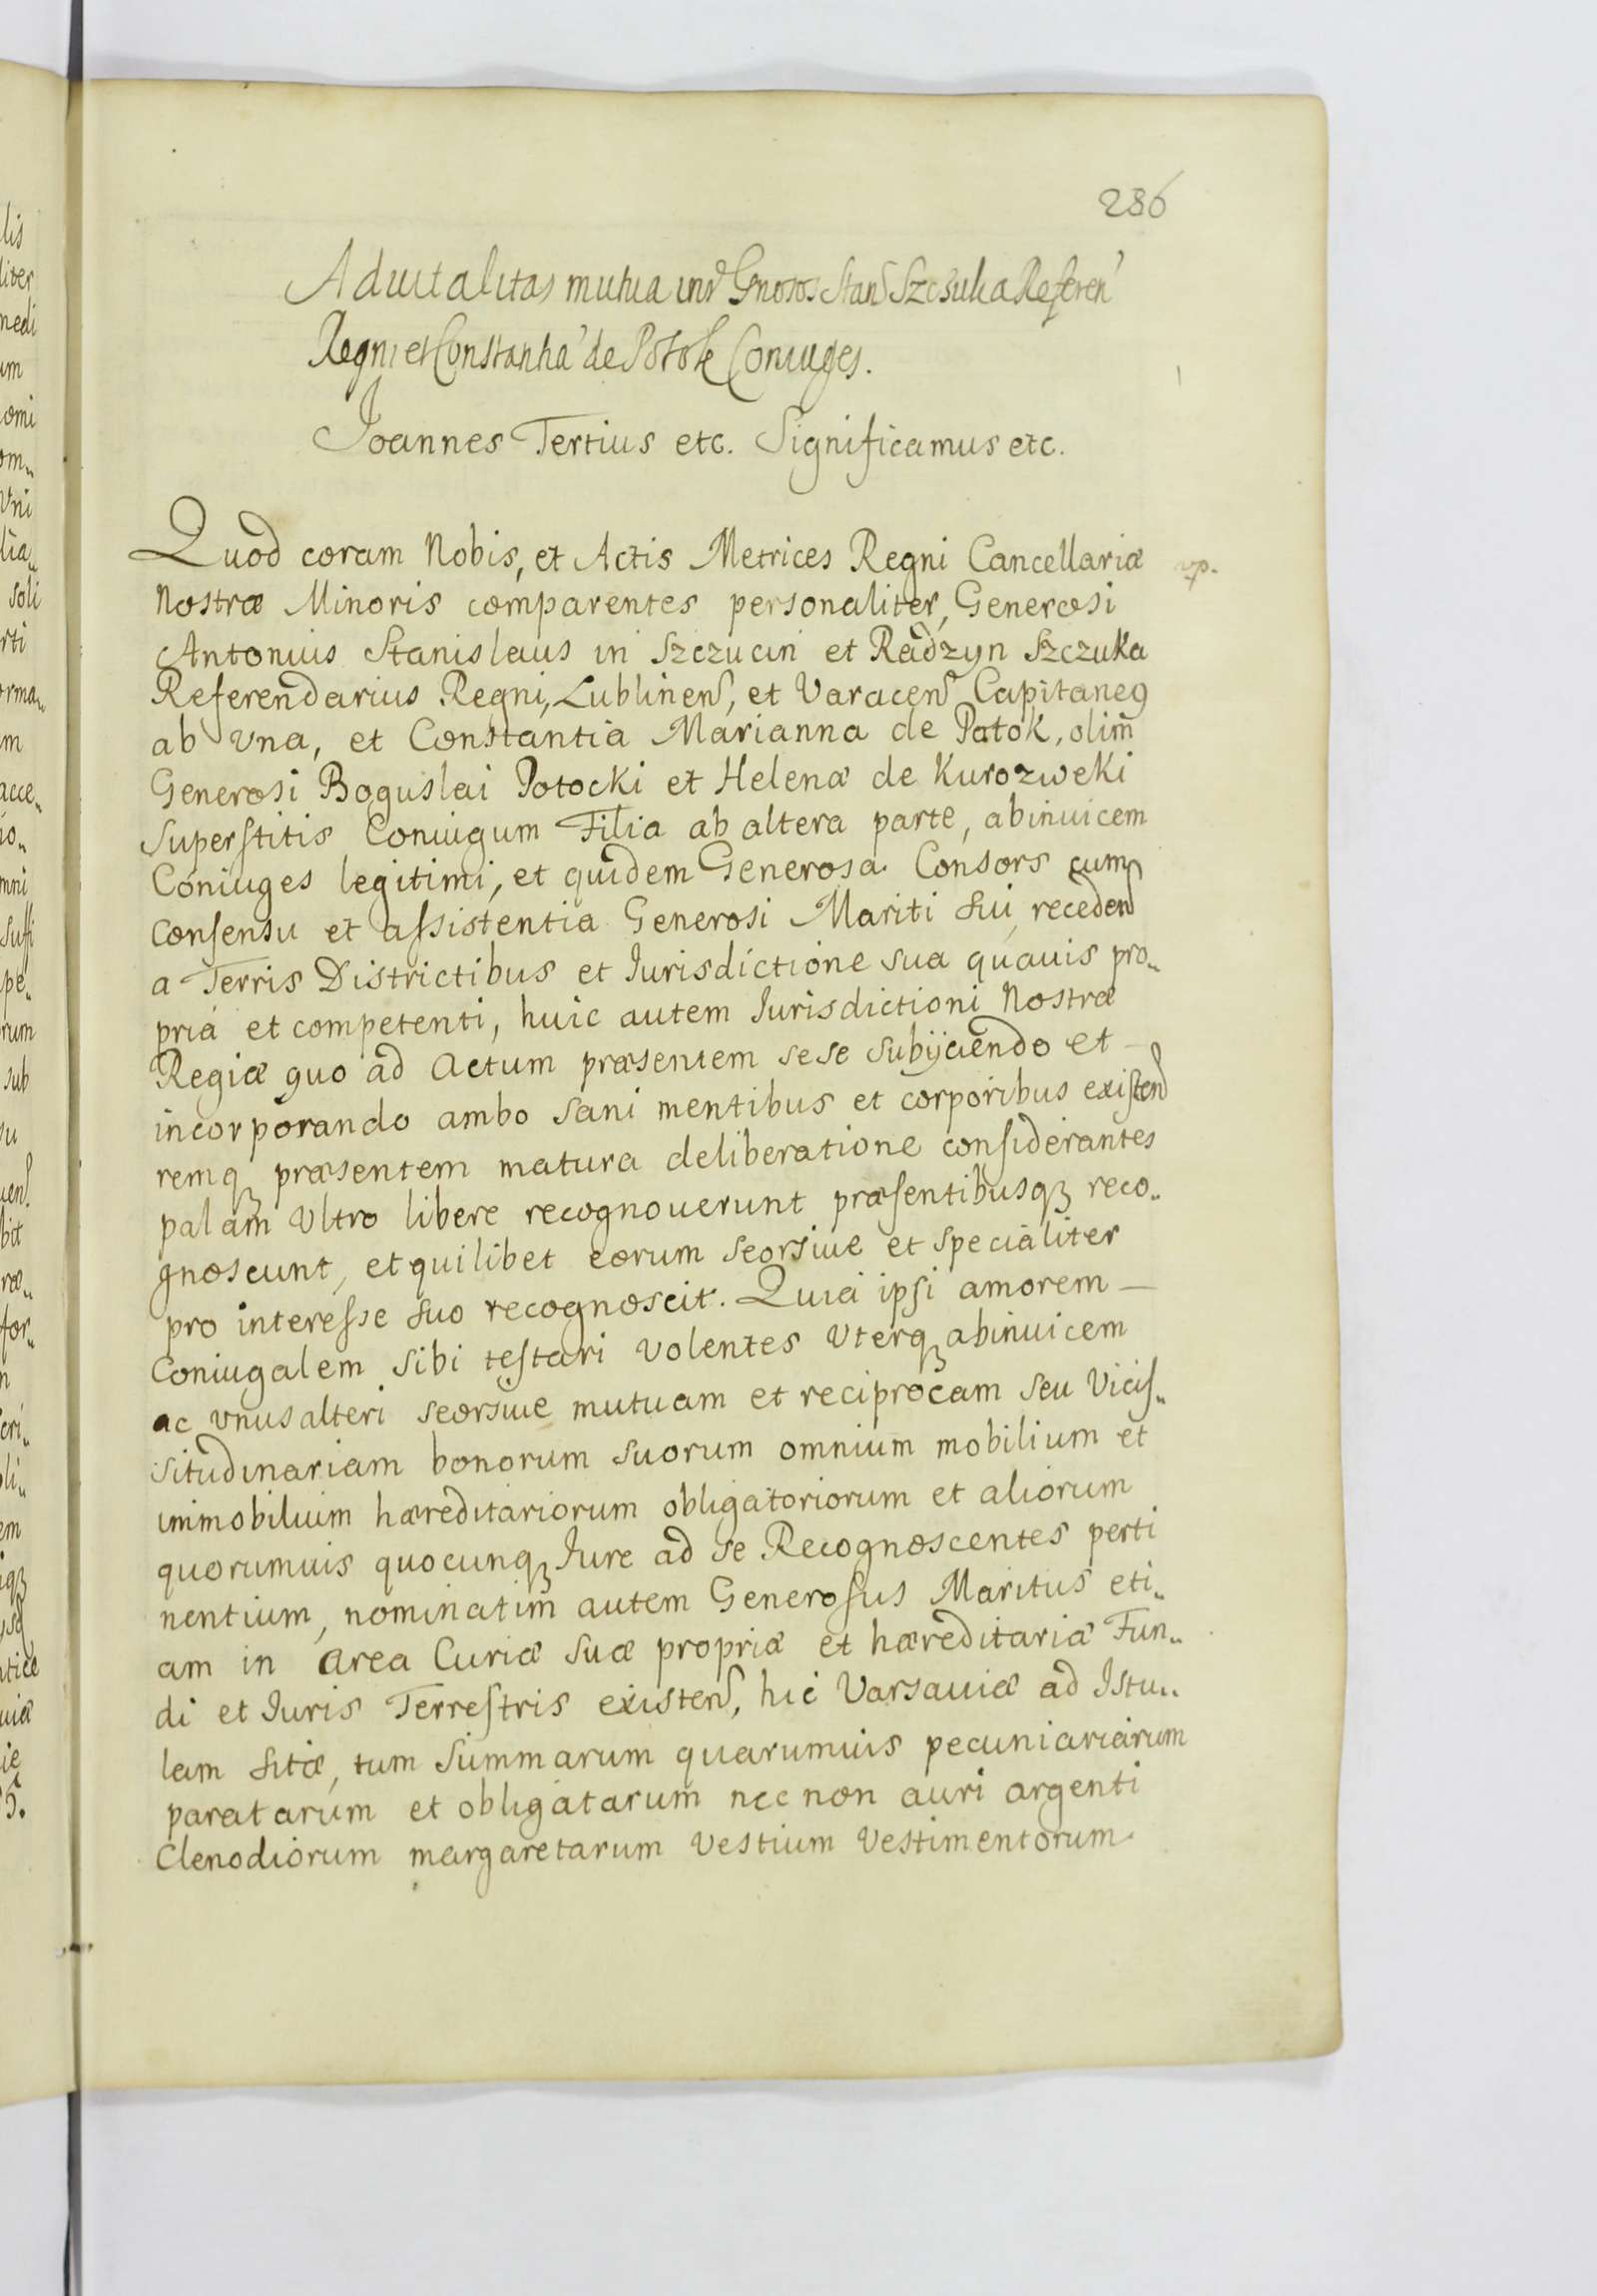 286
Aduitalitas mutua int Gnosos Stan Szczuka Referen
Regni et Constantia de Potok Coniuges.
Joannes Tertius etc. Significamus etc.
Quod coram Nobis, et Actis Metrices Regni Cancellariæ
Nostræ Minoris comparentes personaliter, Generosi
Antonius Stanislaus in Szczucin et Radzyn Szczuka
Referendarius Regni, Lublinen, et Varacen Capitaneꝯ
ab vna, et Constantia Marianna de Potok, olim̃
Generosi Boguslai Potocki et Helenæ de Kurozweki
Superſtitis Coniugum Filia ab altera parte, abinuicem
Coniuges legitimi, et quidem Generosa Consors cum
conſensu et aſsistentia Generosi Mariti sui, receden
a Terris Districtibus et Iurisdictione sua quauis pro„
pria et competenti, huic autem Iurisdictioni Nostræ
Regiæ quo ad Actum præsentem sese subijciendo et —
incorporando ambo sani mentibus et corporibus exiſten
remqꝫ præsentem matura deliberatione conſiderantes
palam Vltro libere recognouerunt præſentibusqꝫ reco„
gnoscunt, et quilibet eorum seorsiue et specialiter
pro intereſse suo recognoscit. Quia ipſi amorem —
Coniugalem sibi teſtari volentes Vterqꝫ abinuicem
ac vnus alteri seorsiue mutuam et reciprocam seu Viciſ„
situdinariam bonorum suorum omnium mobilium et
immobilium hæreditariorum obligatoriorum et aliorum
quorumuis quocunqꝫ Iure ad se Recognoscentes perti
nentium, nominatim autem Generoſus Maritus eti„
am in Area Curiæ suæ propriæ et hæreditariæ Fun„
di et Iuris Terreſtris existen, hic Varsauiæ ad Istu„
lam sitæ, tum Summarum quarumuis pecuniariarum
paratarum et obligatarum nec non auri argenti
Clenodiorum margaretarum Vestium Vestimentorum